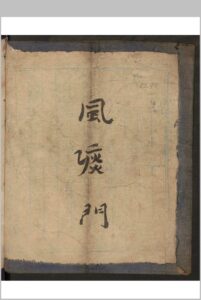 風痰門